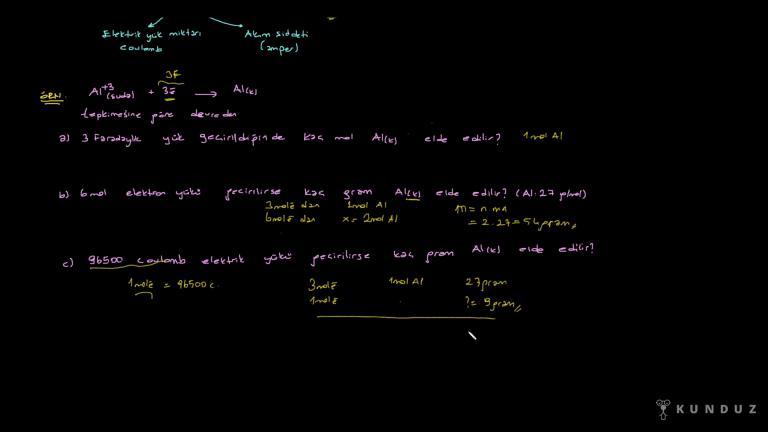 Elektrik yük miktarı
coulomb
Akım şiddeti
(amper)
3F
ÖRN: Al⁺³(suda) + 3ē → Al(k)
tepkimesine göre devreden
a) 3 Faradaylık yük geçirildiğinde kaç mol Al(k) elde edilir? 1mol Al
b) 6mol elektron yükü geçirilirse kaç gram Al(k) elde edilir? (Al:27 g/mol)
3molē dan 1mol Al m = n.mA
6molē dan x = 2mol Al = 2.27 = 54gram
c) 96500 coulomb elektrik yükü geçirilirse kaç gram Al(k) elde edilir?
1molē = 96500c. 3molē 1mol Al 27gram
1molē ? = 9gram
KUNDUZ